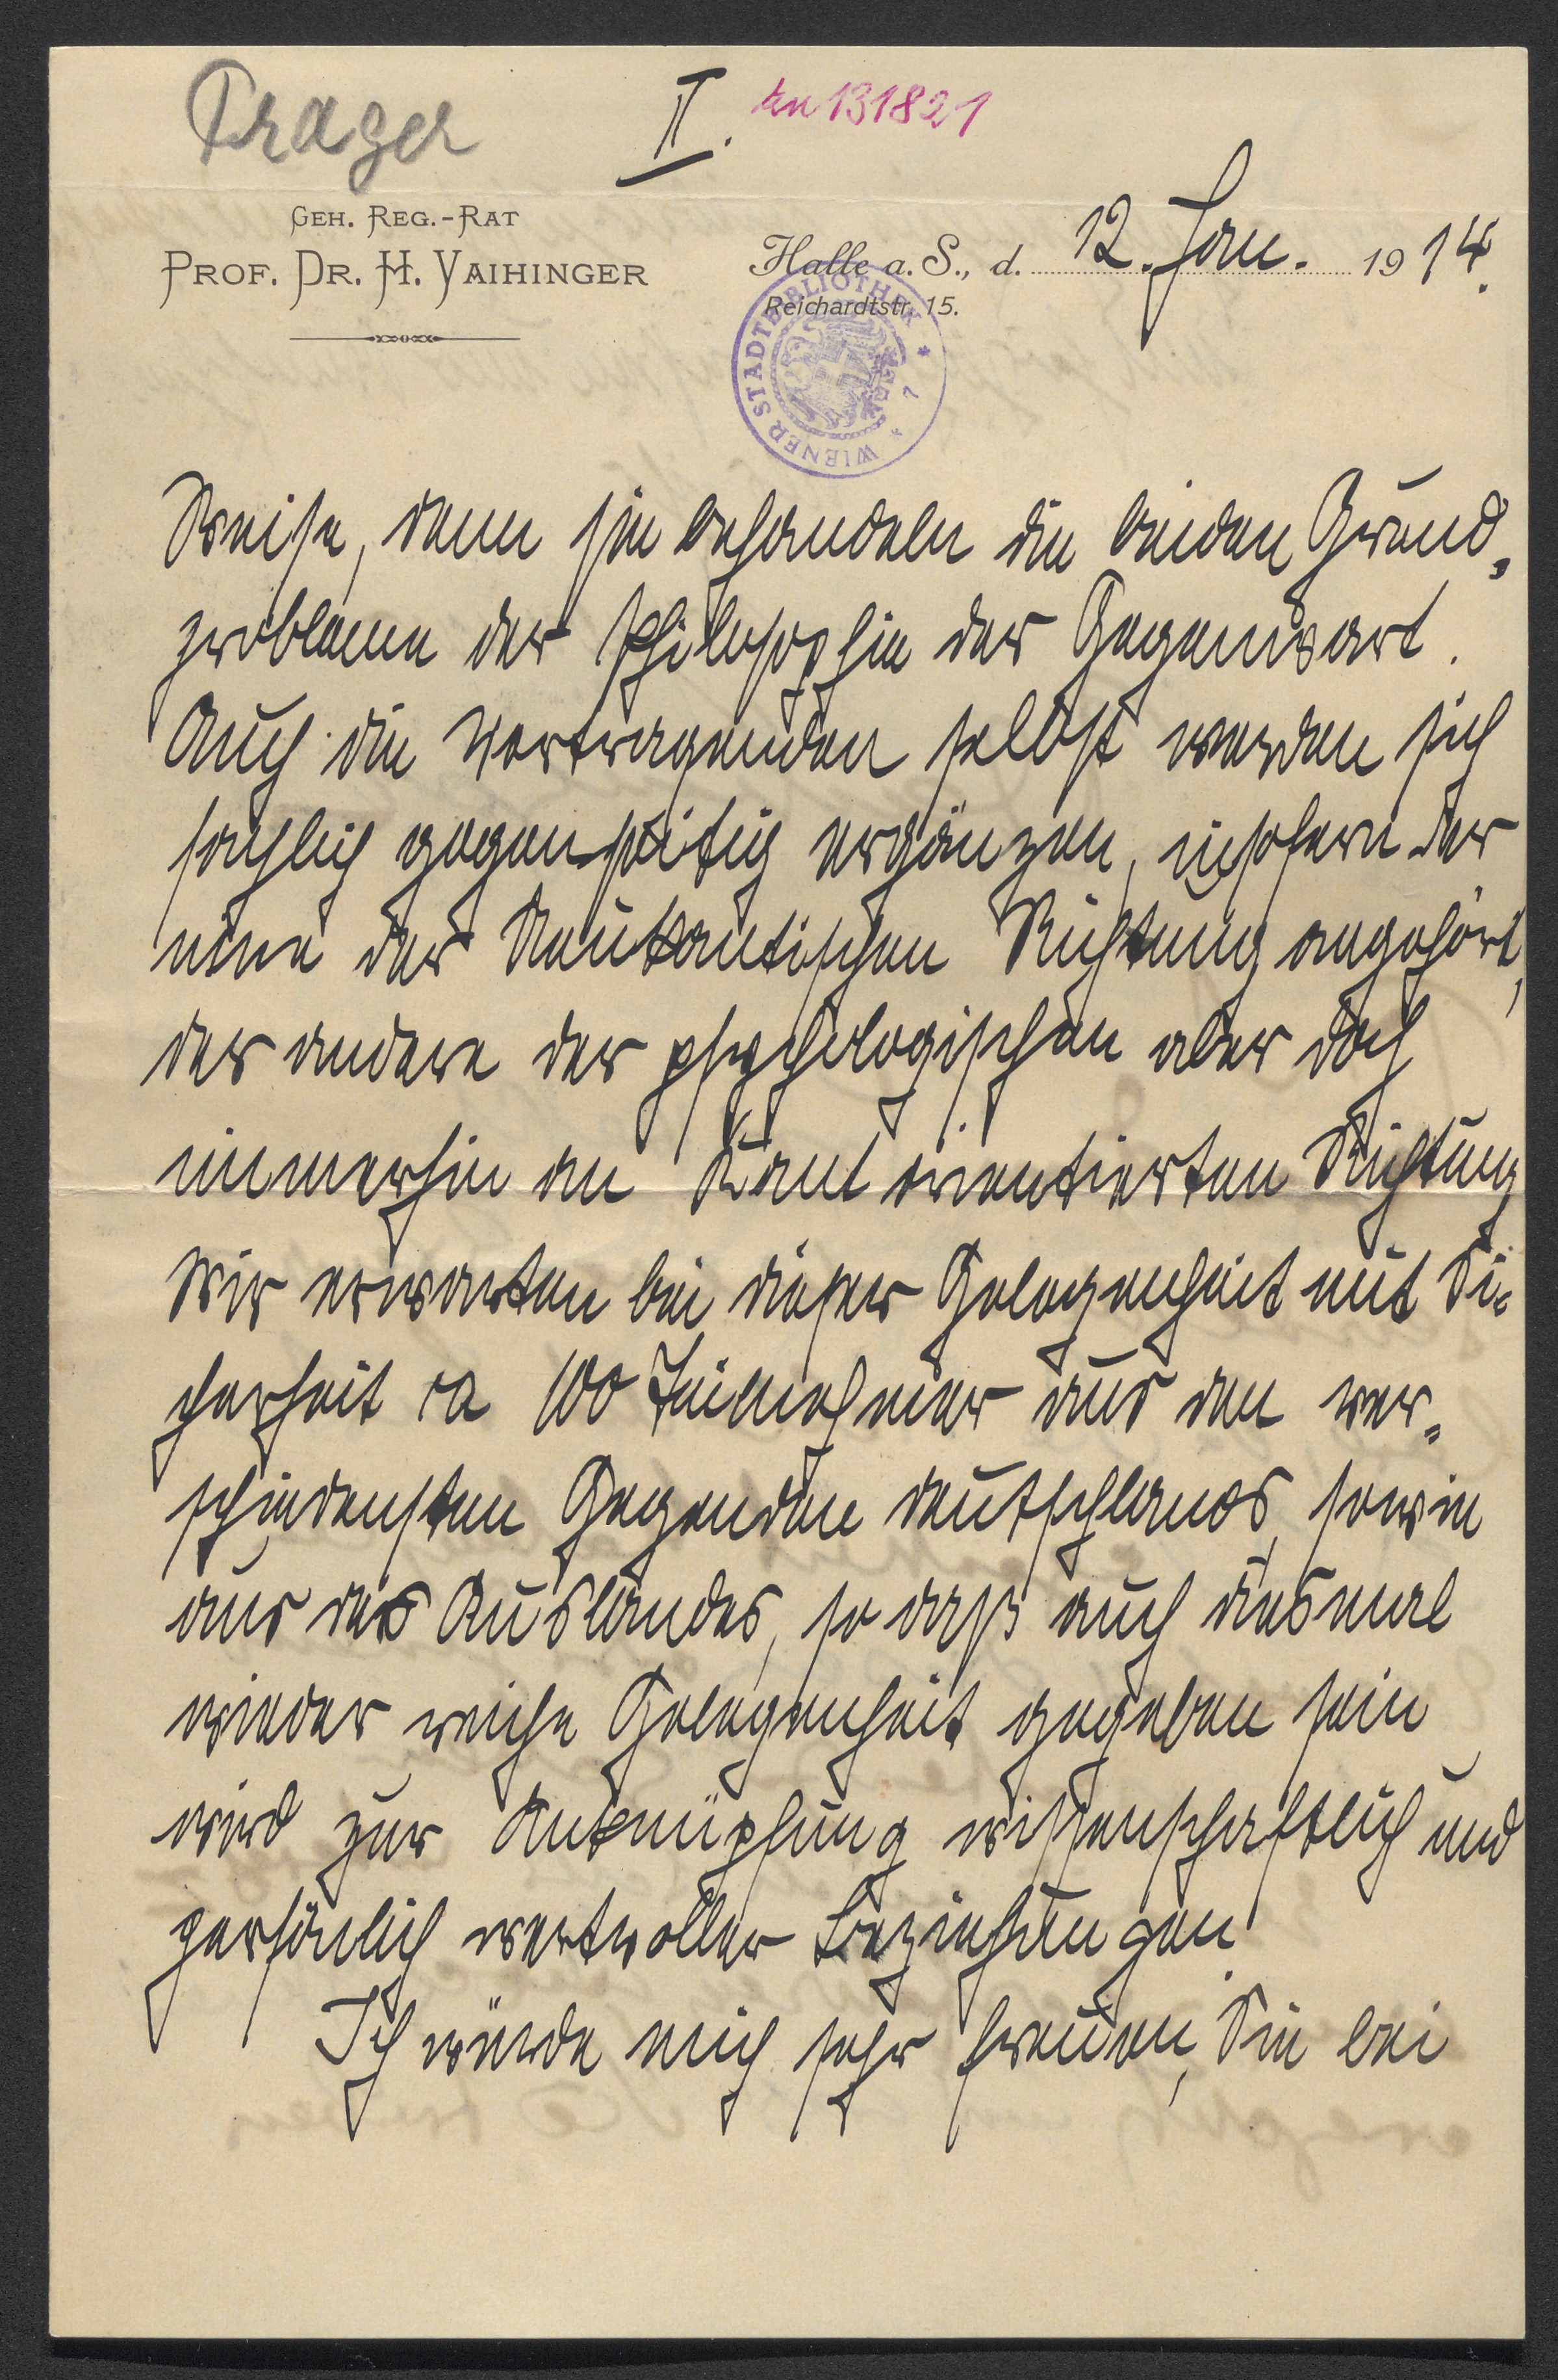 Prager
II.
An 131821
GEH. REG.-RAT
PROF. DR. H. VAIHINGER
Halle a. S., d. 12. Jan. 1914.
Reichardtstr. 15.
WIENER STADTBIBLIOTHEK * 7 *
Weise, denn sie behandeln die beiden Grund-
probleme der Philosophie der Gegenwart.
Auch die Vortragenden selbst werden sich
sachlich gegenseitig ergänzen, insofern der
eine der Neukantischen Richtung angehört,
der andere der psychologischen aber doch
immerhin an Kant orientierten Richtung
Wir erwarten bei dieser Gelegenheit mit Si-
cherheit ca 100 Teilnehmer aus den ver-
schiedensten Gegenden Deutschlands, sowie
aus des Auslandes, so daß auch diesmal
wieder reiche Gelegenheit gegeben sein
wird zur Anknüpfung wissenschaftlich und
persönlich wertvoller Beziehungen.
Ich würde mich sehr freuen, Sie bei